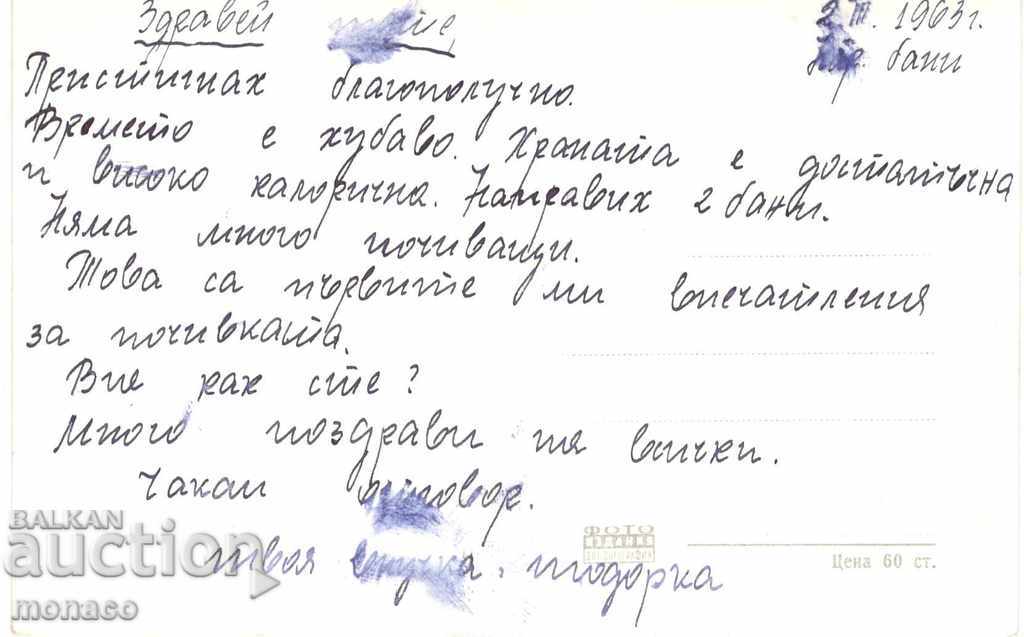 Здравей
III. 1963 г.
бани
Пристигнах благополучно.
Времето е хубаво. Храната е достатъчна
и високо калорична. Направих 2 бани.
Няма много почиващи.
Това са първите ми впечатления
за почивката.
Вие как сте?
Много поздрави на всички.
Чакам отговор.
твоя внучка, Тодорка
ФОТО
ИЗДАНИЕ
Цена 60 ст.
BALKAN
auction
monaco